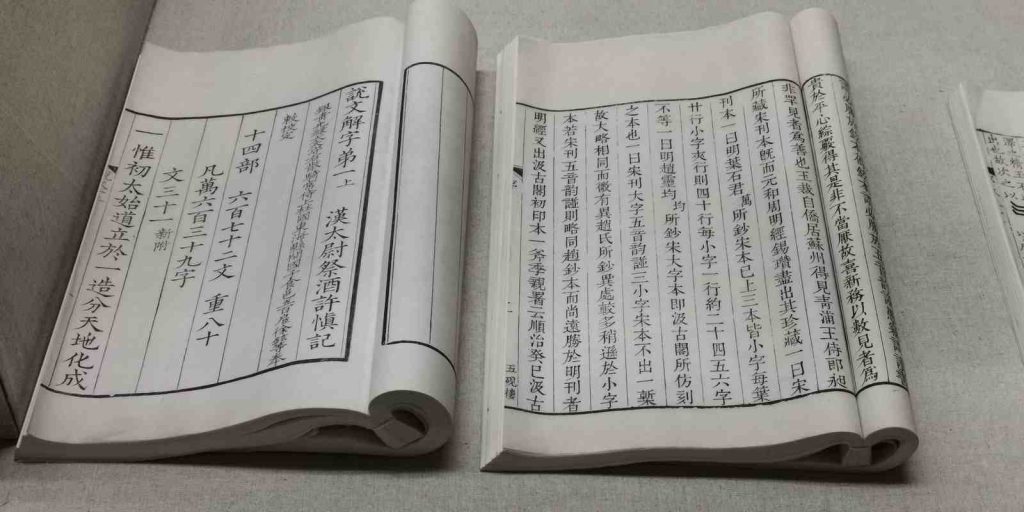 說文解字弟一上 漢太尉祭酒許慎記
敕校定
十四部 六百七十二文 重八十
凡萬六百三十九字
文三十一 新附
一惟初太始道立於一造分天地化成
貴於平心綜覈得其是非不當厭故喜新務以數見者爲
非罕見者爲善也玉裁自僑居蘇州得見青浦王侍郎昶
所藏宋刊本旣而元和周明經錫瓚盡出其珍藏一曰宋
刊本一曰明葉石君萬所鈔宋本已上三本皆小字每葉
廿行小字夾行則四十行每小字一行約二十四五六字
不等一曰明趙靈均均所鈔宋大字本即汲古閣所仿刻
之本也一曰宋刊大字五音韵譜三小字宋本不出一槧
故大略相同而微有異趙氏所鈔異處較多稍遜於小字
本若宋刊五音韵譜則略同趙鈔本而尚遠勝於明刊者
明經又出汲古閣初印本一斧季親署云順治癸巳汲古
五硯樓